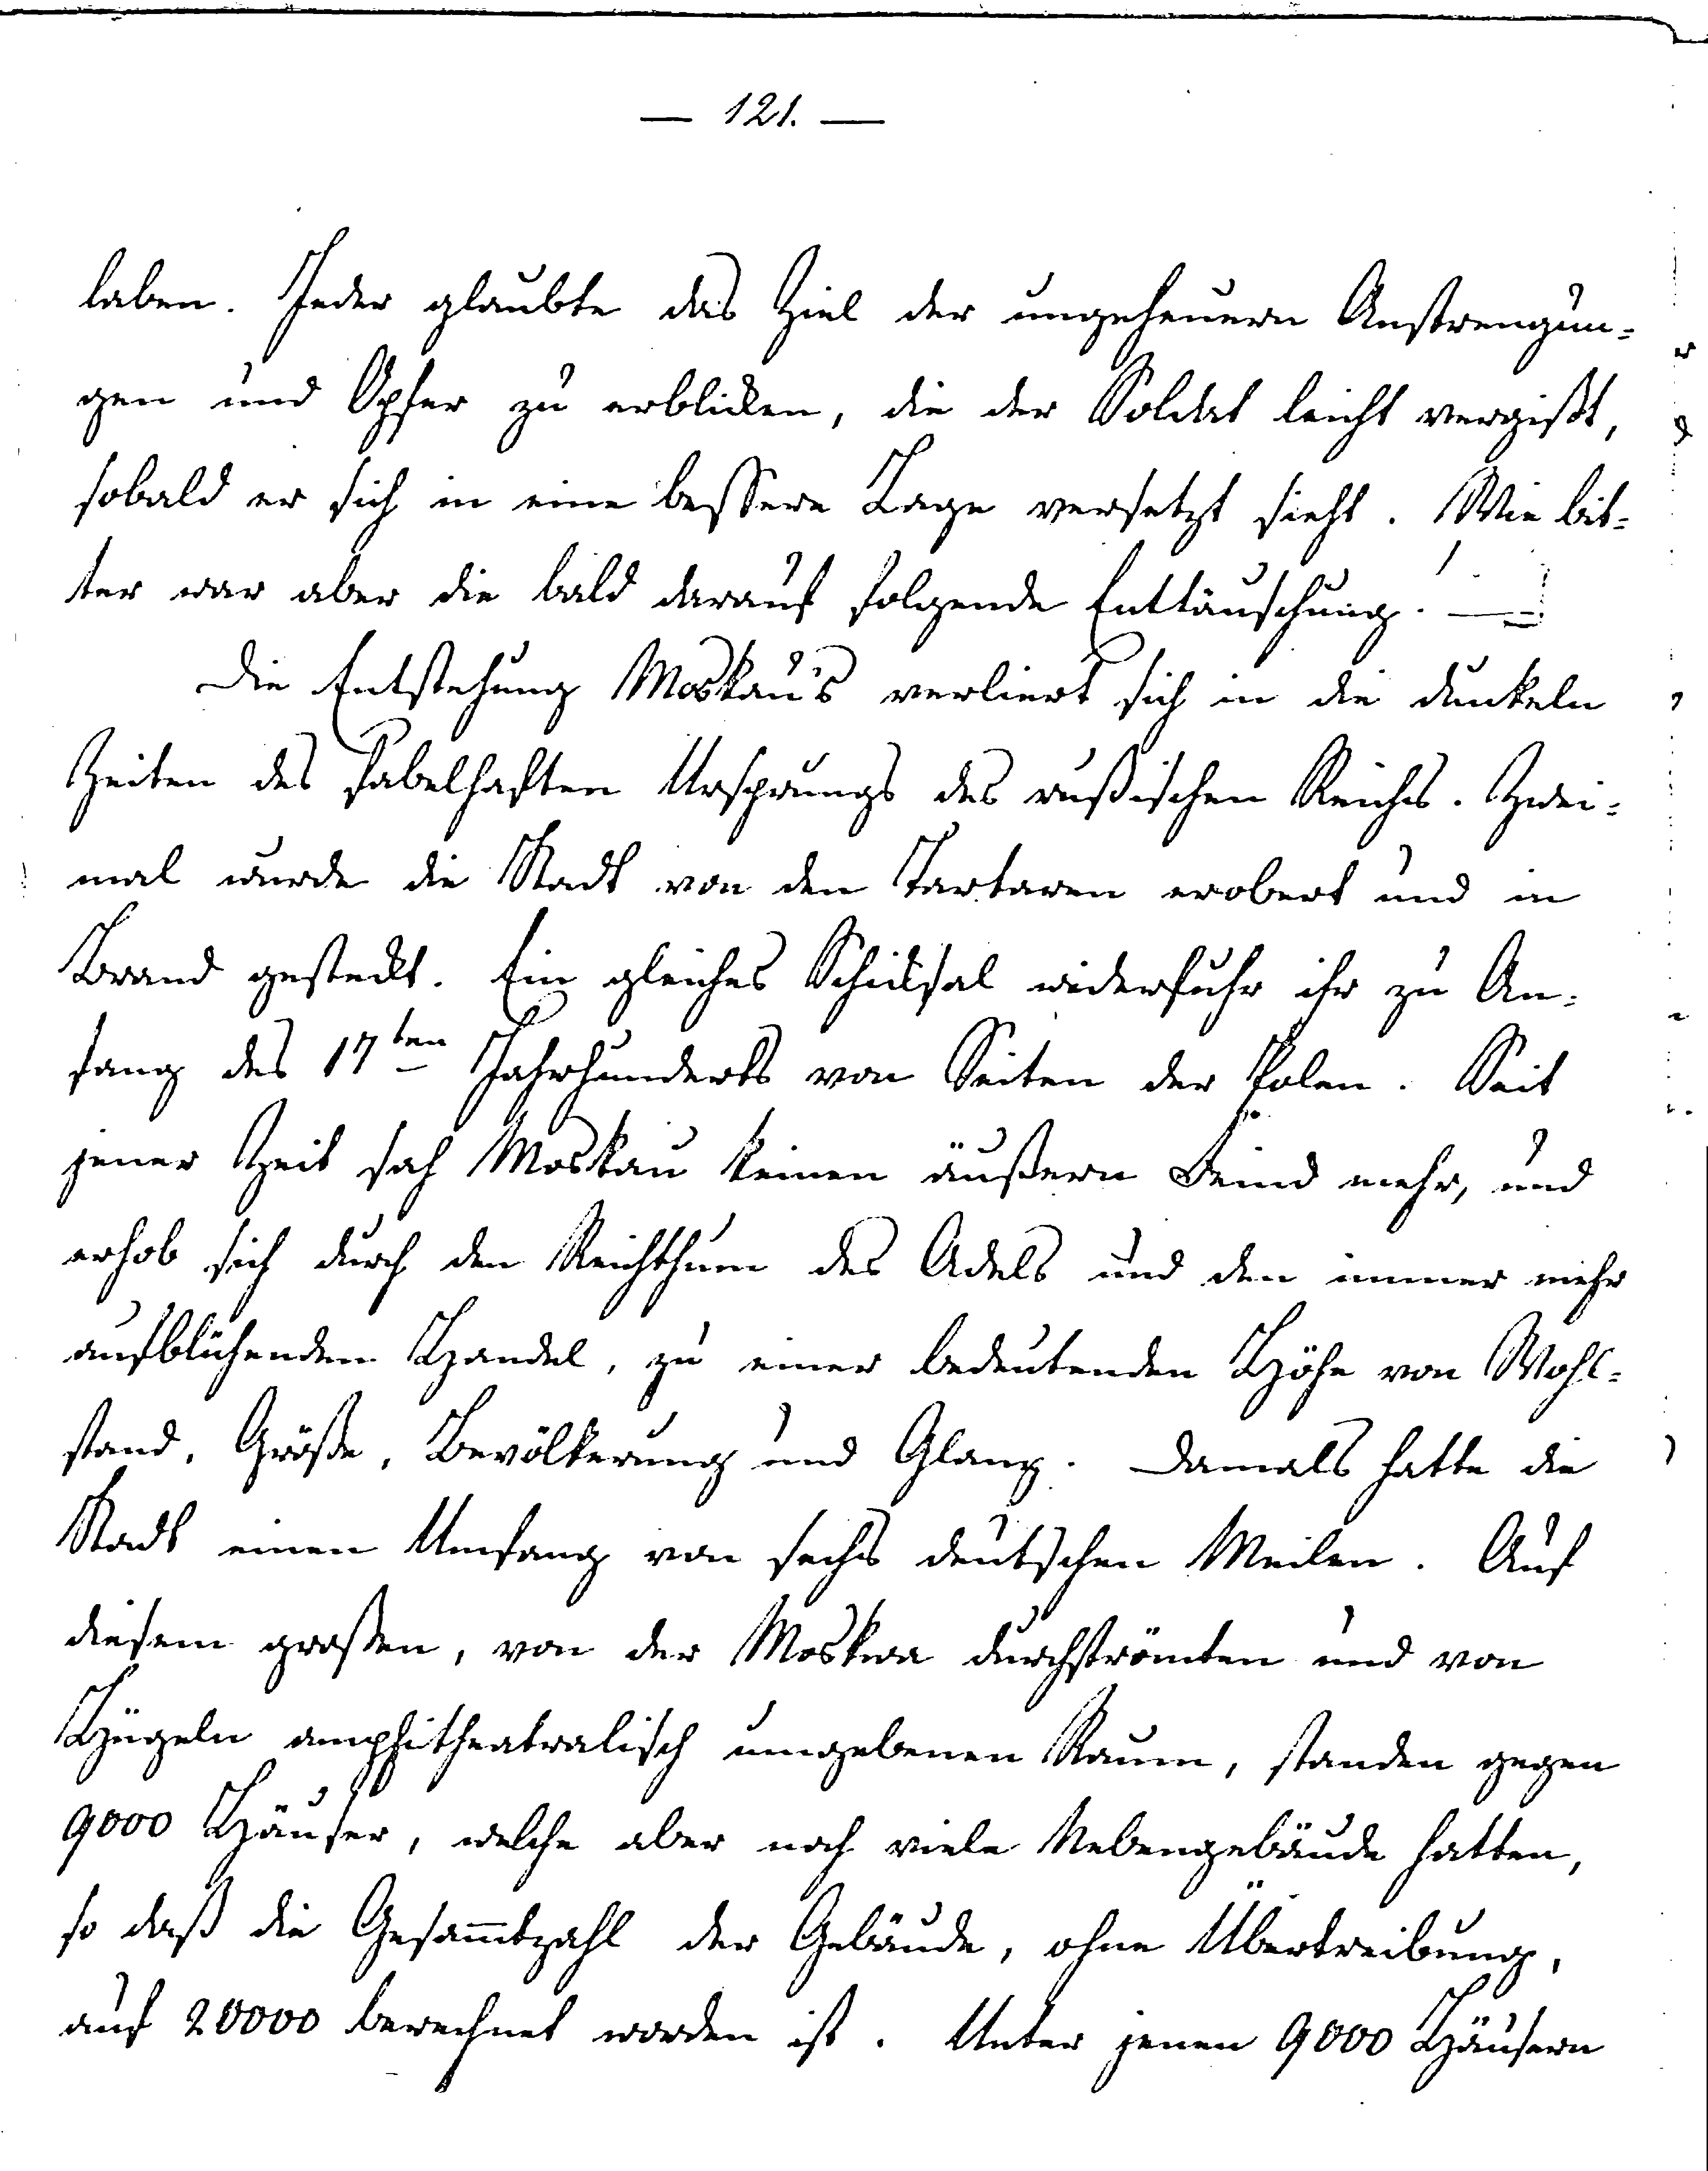 — 121. —
laben. Jeder glaubte das Ziel der ungeheuern Anstrengun=
gen und Opfer zu erblicken, die der Soldat leicht vergißt,
sobald er sich in eine bessere Lage versetzt sieht. Wie bit=
ter war aber die bald darauf folgende Enttäuschung! —
Die Entstehung Moskau's verliert sich in die dunkeln
Zeiten des fabelhaften Ursprungs des rußischen Reichs. Zwei=
mal wurde die Stadt von den Tartaren erobert und in
Brand gesteckt. Ein gleiches Schicksal widerfuhr ihr zu An=
fang des 17ten Jahrhunderts von Seiten der Polen. Seit
jener Zeit sah Moskau keinen äußern Feind mehr, und
erhob sich durch den Reichthum des Adels und den immer mehr
aufblühenden Handel, zu einer bedeutenden Höhe von Wohl=
stand, Größe, Bevölkerung und Glanz. Damals hatte die
Stadt einen Umfang von sechs deutschen Meilen. Auf
diesem großen, von der Moskwa durchströmten und von
Hügeln amphitheatralisch umgebenen Raum, standen gegen
9000 Häuser, welche aber noch viele Nebengebäude hatten,
so daß die Gesam̅tzahl der Gebäude, ohne Übertreibung,
auf 20000 berechnet worden ist. Unter jenen 9000 Häusern